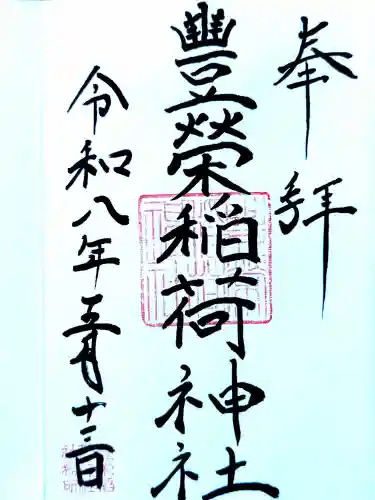 奉拝
豐榮稲荷神社
令和八年五月十三日